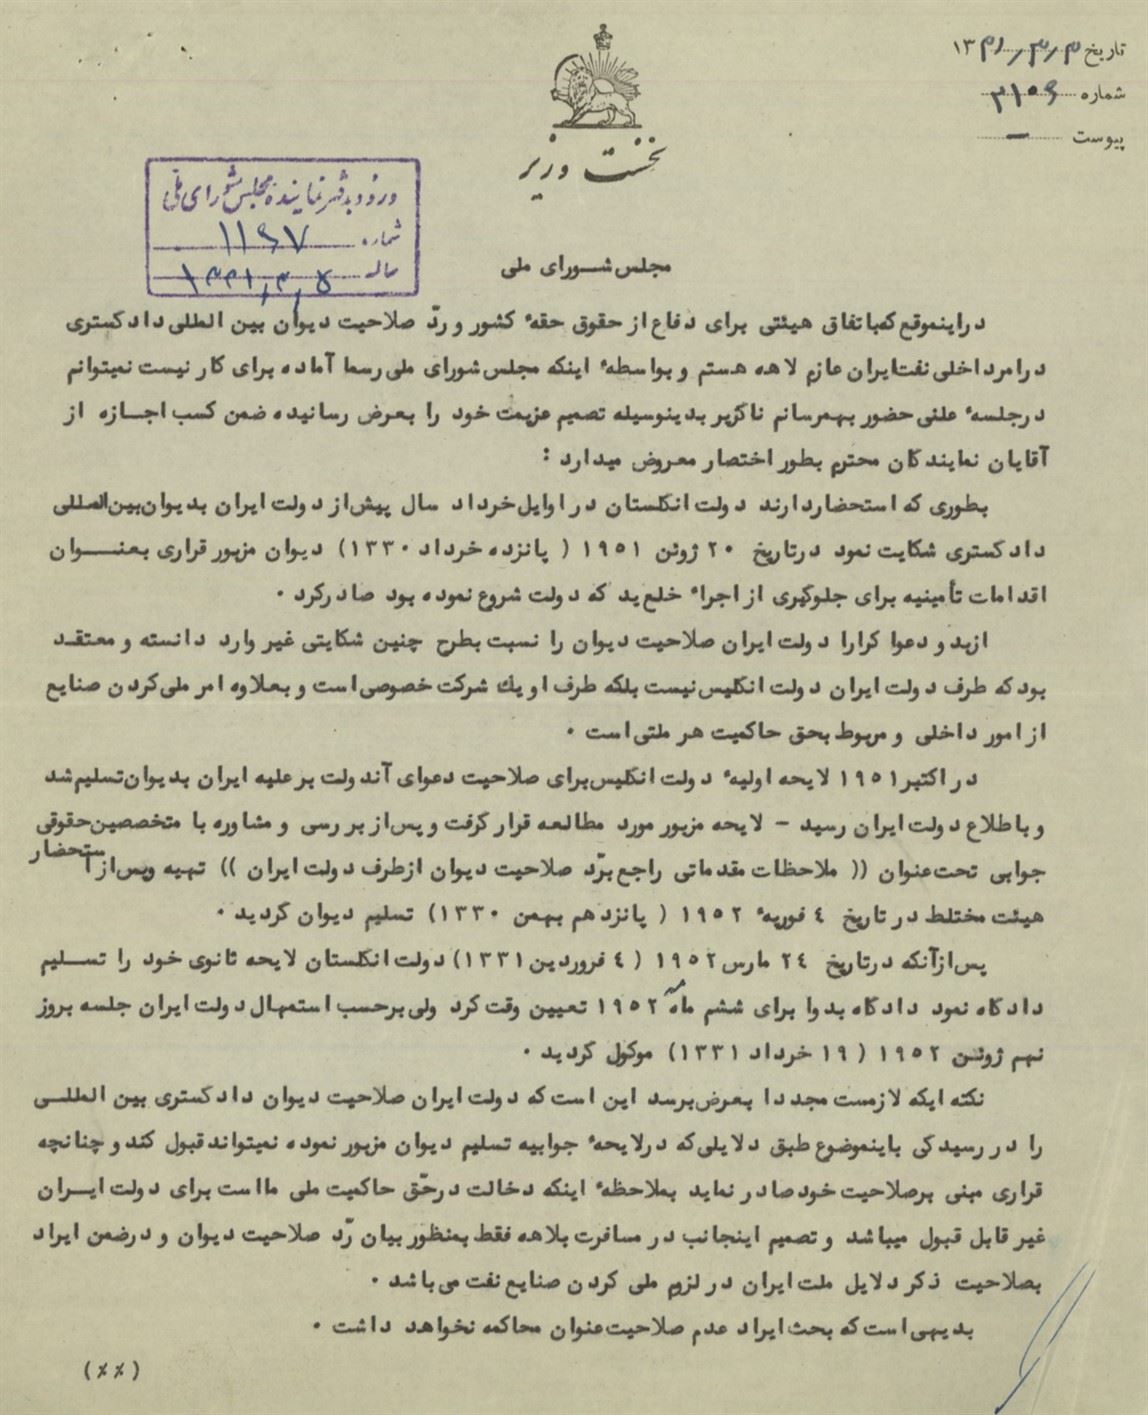 تاریخ ۱۳۳۱/۳/۳
شماره ۳۱۰۶
پیوست —
نخست وزیر
ورود بدفتر نماینده مجلس شورای ملی
شماره ۱۱۶۷
۱۳۳۱/۳/۵
مجلس شورای ملی
دراینموقع که باتفاق هیئتی برای دفاع از حقوق حقهٔ کشور و ردّ صلاحیت دیوان بین المللی دادگستری
درامرداخلی نفت ایران عازم لاهه هستم و بواسطهٔ اینکه مجلس شورای ملی رسما آماده برای کار نیست نمیتوانم
درجلسهٔ علنی حضور بهمرسانم ناگزیر بدینوسیله تصمیم عزیمت خود را بعرض رسانیده ضمن کسب اجازه از
آقایان نمایندگان محترم بطور اختصار معروض میدارد :
بطوری که استحضاردارند دولت انگلستان در اوایل خرداد سال پیش از دولت ایران بدیوان بین المللی
دادگستری شکایت نمود درتاریخ ۲۰ ژوئن ۱۹۵۱ ( پانزده خرداد ۱۳۳۰) دیوان مزبور قراری بعنوان
اقدامات تأمینیه برای جلوگیری از اجراء خلع ید که دولت شروع نموده بود صادرکرد ۰
ازبدو دعوا کرارا دولت ایران صلاحیت دیوان را نسبت بطرح چنین شکایتی غیر وارد دانسته و معتقد
بود که طرف دولت ایران دولت انگلیس نیست بلکه طرف او یك شرکت خصوصی است و بعلاوه امر ملی کردن صنایع
از امور داخلی و مربوط بحق حاکمیت هر ملتی است ۰
در اکتبر ۱۹۵۱ لایحه اولیهٔ دولت انگلیس برای صلاحیت دعوای آندولت بر علیه ایران بدیوان تسلیم شد
و باطلاع دولت ایران رسید - لایحه مزبور مورد مطالعه قرار گرفت و پس از بررسی و مشاوره با متخصصین حقوقی
جوابی تحت عنوان (( ملاحظات مقدماتی راجع بردّ صلاحیت دیوان ازطرف دولت ایران )) تهیه وپس از استحضار
هیئت مختلط در تاریخ ٤ فوریهٔ ۱۹۵۲ ( پانزدهم بهمن ۱۳۳۰) تسلیم دیوان گردید ۰
پس ازآنکه درتاریخ ۲٤ مارس ۱۹۵۲ ( ٤ فروردین ۱۳۳۱) دولت انگلستان لایحه ثانوی خود را تسلیم
دادگاه نمود دادگاه بدوا برای ششم ماه مه ۱۹۵۲ تعیین وقت کرد ولی برحسب استمهال دولت ایران جلسه بروز
نهم ژوئن ۱۹۵۲ ( ۱۹ خرداد ۱۳۳۱) موکول گردید ۰
نکته ایکه لازمست مجددا بعرض برسد این است که دولت ایران صلاحیت دیوان دادگستری بین المللی
را در رسیدگی باینموضوع طبق دلایلی که درلایحهٔ جوابیه تسلیم دیوان مزبور نموده نمیتواند قبول کند و چنانچه
قراری مبنی برصلاحیت خود صادر نماید بملاحظهٔ اینکه دخالت در حقّ حاکمیت ملی ما است برای دولت ایران
غیر قابل قبول میباشد و تصمیم اینجانب در مسافرت بلاهه فقط بمنظور بیان ردّ صلاحیت دیوان و درضمن ایراد
بصلاحیت ذکر دلایل ملت ایران در لزوم ملی کردن صنایع نفت می باشد ۰
بدیهی است که بحث ایراد عدم صلاحیت عنوان محاکمه نخواهد داشت ۰
(٪٪)